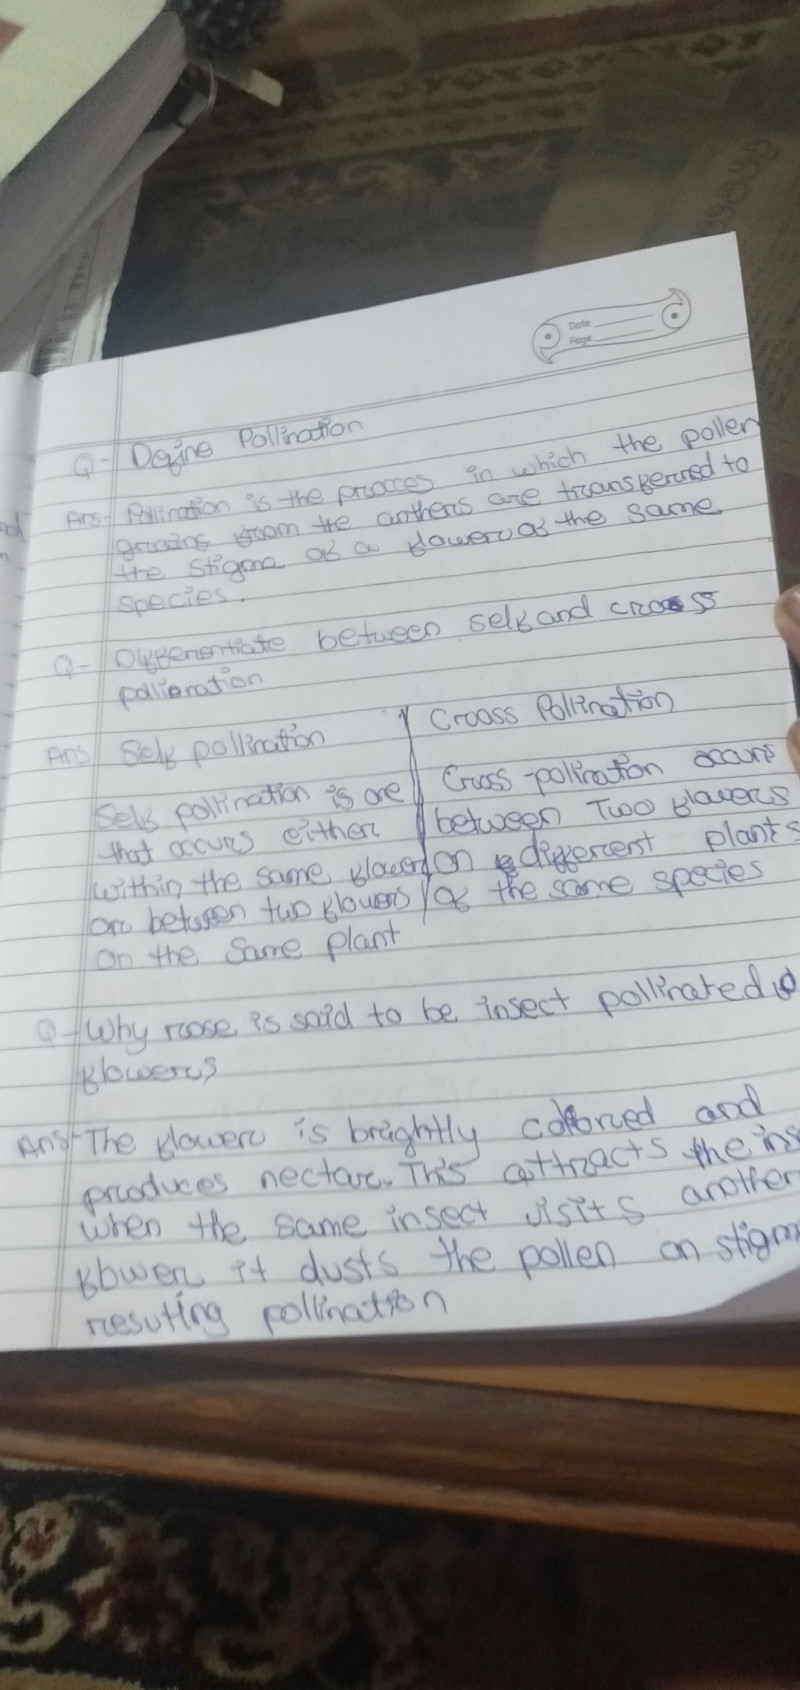 Date
Page
Q- Define Pollination
Ans- Pollination is the procces in which the pollen
grains from the anthers are transferred to
the stigma of a flower of the same
species.
Q- Differentiate between self and cross
pollination
Ans Self pollination
Crooss Pollination
Self pollination is one
that occurs either
within the same flower
or between two flowers
on the same plant
Cross-pollination occurs
between Two flowers
on different plants
of the same species
Q- Why rose is said to be insect pollinated
flowers
Ans- The flower is brightly colored and
produces nectar. This attracts the ins
when the same insect visits another
flower it dusts the pollen on stigm
resuting pollination